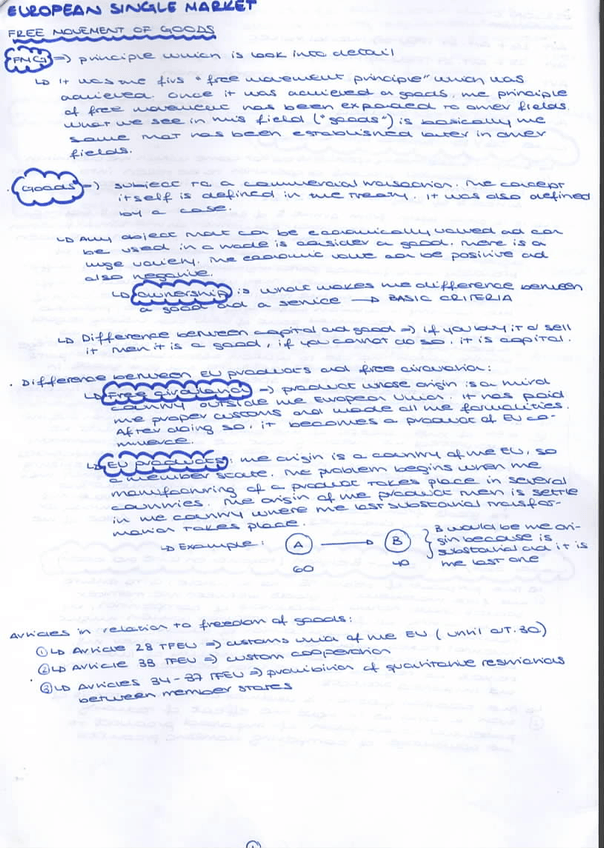 EUROPEAN SINGLE MARKET
FREE MOVEMENT OF GOODS
FMG => principle which is look into detail
↳ It was the first "free movement principle" which was
achieved. Once it was achieved on goods, the principle
of free movement has been expanded to other fields.
What we see in this field ("goods") is basically the
same that has been established later in other
fields.
· Goods => subject to a commercial transaction. The concept
itself is defined in the Treaty. It was also defined
by a case.
↳ Any object that can be economically valued and can
be used in a trade is consider a good. There is a
huge variety. The economic value can be positive and
also negative.
↳ Ownership is what makes the difference between
a good and a service → BASIC CRITERIA
↳ Difference between capital and good => if you buy it or sell
it then it is a good, if you cannot do so, it is capital.
· Difference between EU products and free circulation:
↳ Free circulation => product whose origin is a third
country outside the European Union. It has paid
the proper customs and made all the formalities.
After doing so, it becomes a product of EU co-
mmerce.
↳ EU products: the origin is a country of the EU, so
a member state. The problem begins when the
manufacturing of a product takes place in several
countries. The origin of the product then is settle
in the country where the last substantial transfor-
mation takes place.
→ Example: A → B } B would be the ori-
gin because is
substantial and it is
the last one
60 40
Articles in relation to freedom of goods:
① ↳ Article 28 TFEU => customs union of the EU (until art. 30)
② ↳ Article 38 TFEU => custom cooperation
③ ↳ Articles 34-37 TFEU => prohibition of qualitative restrictions
between member states